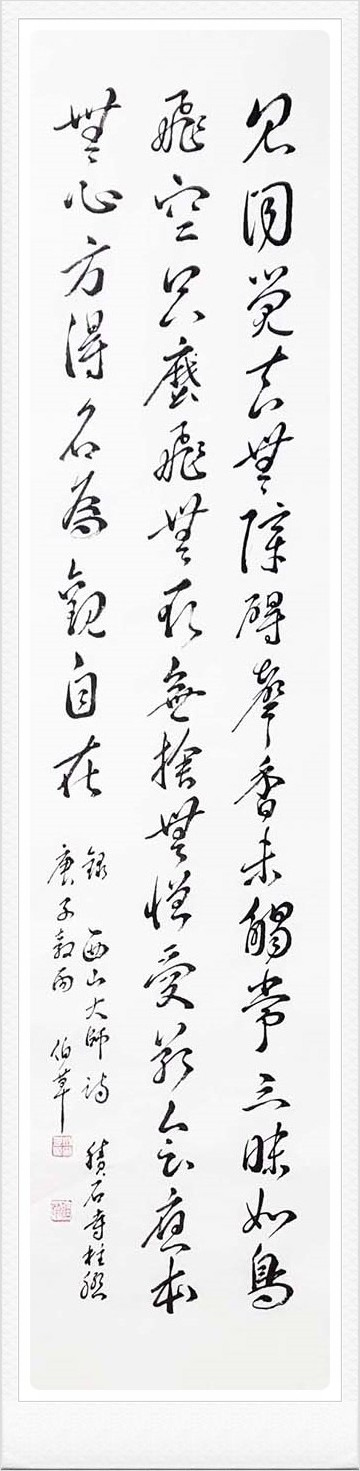 見聞覚知無障碍聲香未觸常三昧如鳥
飛空只麼飛無取無捨無憎愛若會應本
無心方得名為觀自在
錄 西山大師 詩 積石寺柱聯
庚子穀雨 伯草